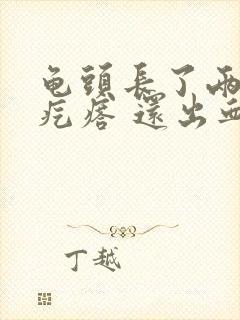 龟頭長了兩
疙瘩 還出血
丁越